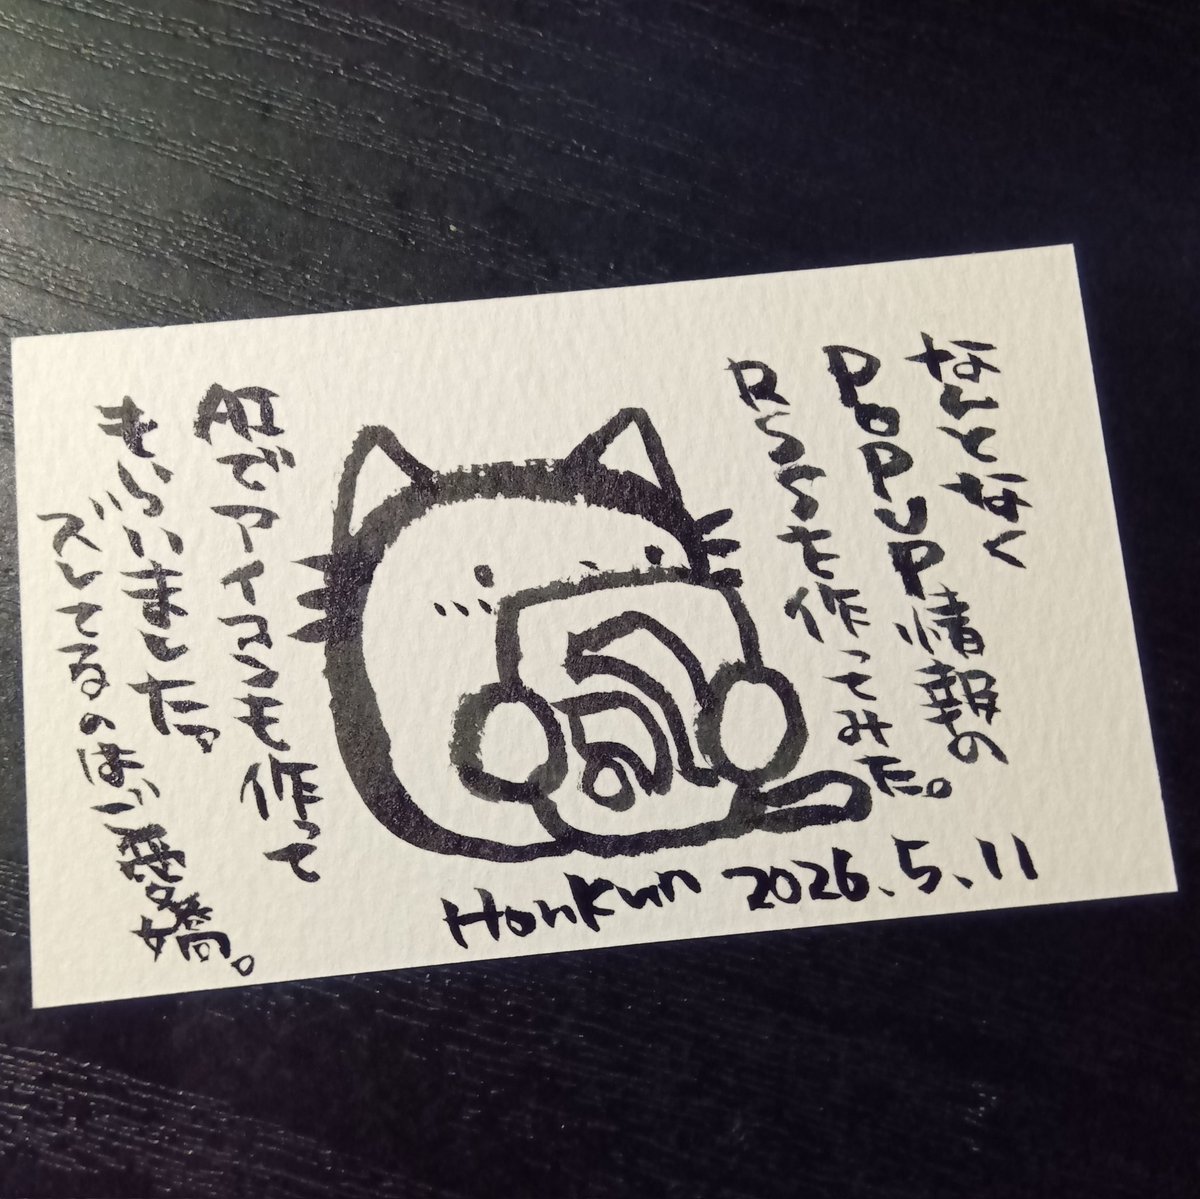 なんとなく
POPUP情報の
RSSを作ってみた。
AIでアイコンも作って
もらいました。
ズレてるのは、愛嬌。
Honkun 2026.5.11